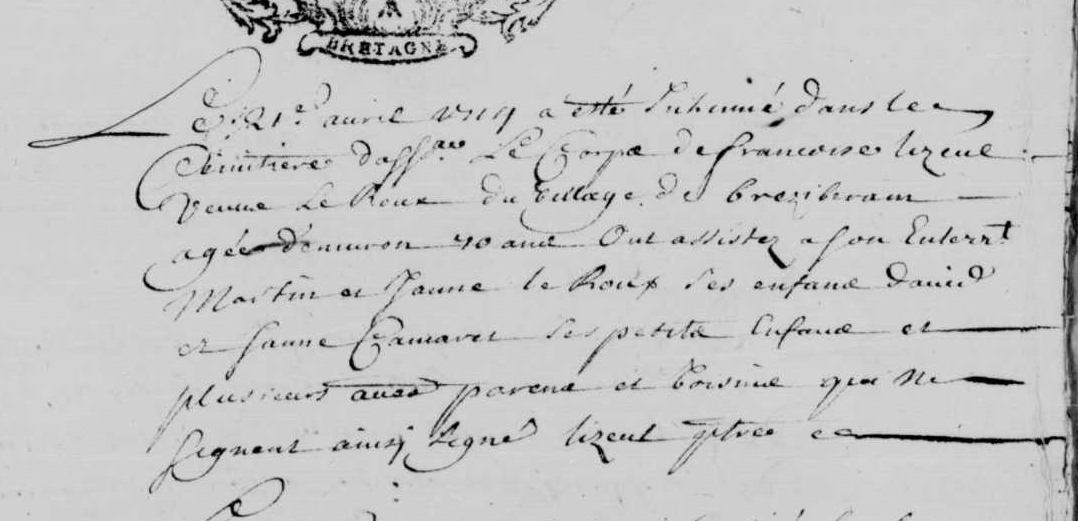 BRETAGNE
Le 21e avril 1714 a etté Inhumé dans le
Cimitiere dass.ac Le Corps de francoise lizeul
veuue Le Roux du village de
agée denuiron 70 ans Ont assistez a son Enterrt
Martin et Janne le Roux ses enfans dauid
et Janne Camaret ses petits Enfans et
plusieurs aues parens et voisins qui ne
signent ainsi signé lizeul ptre